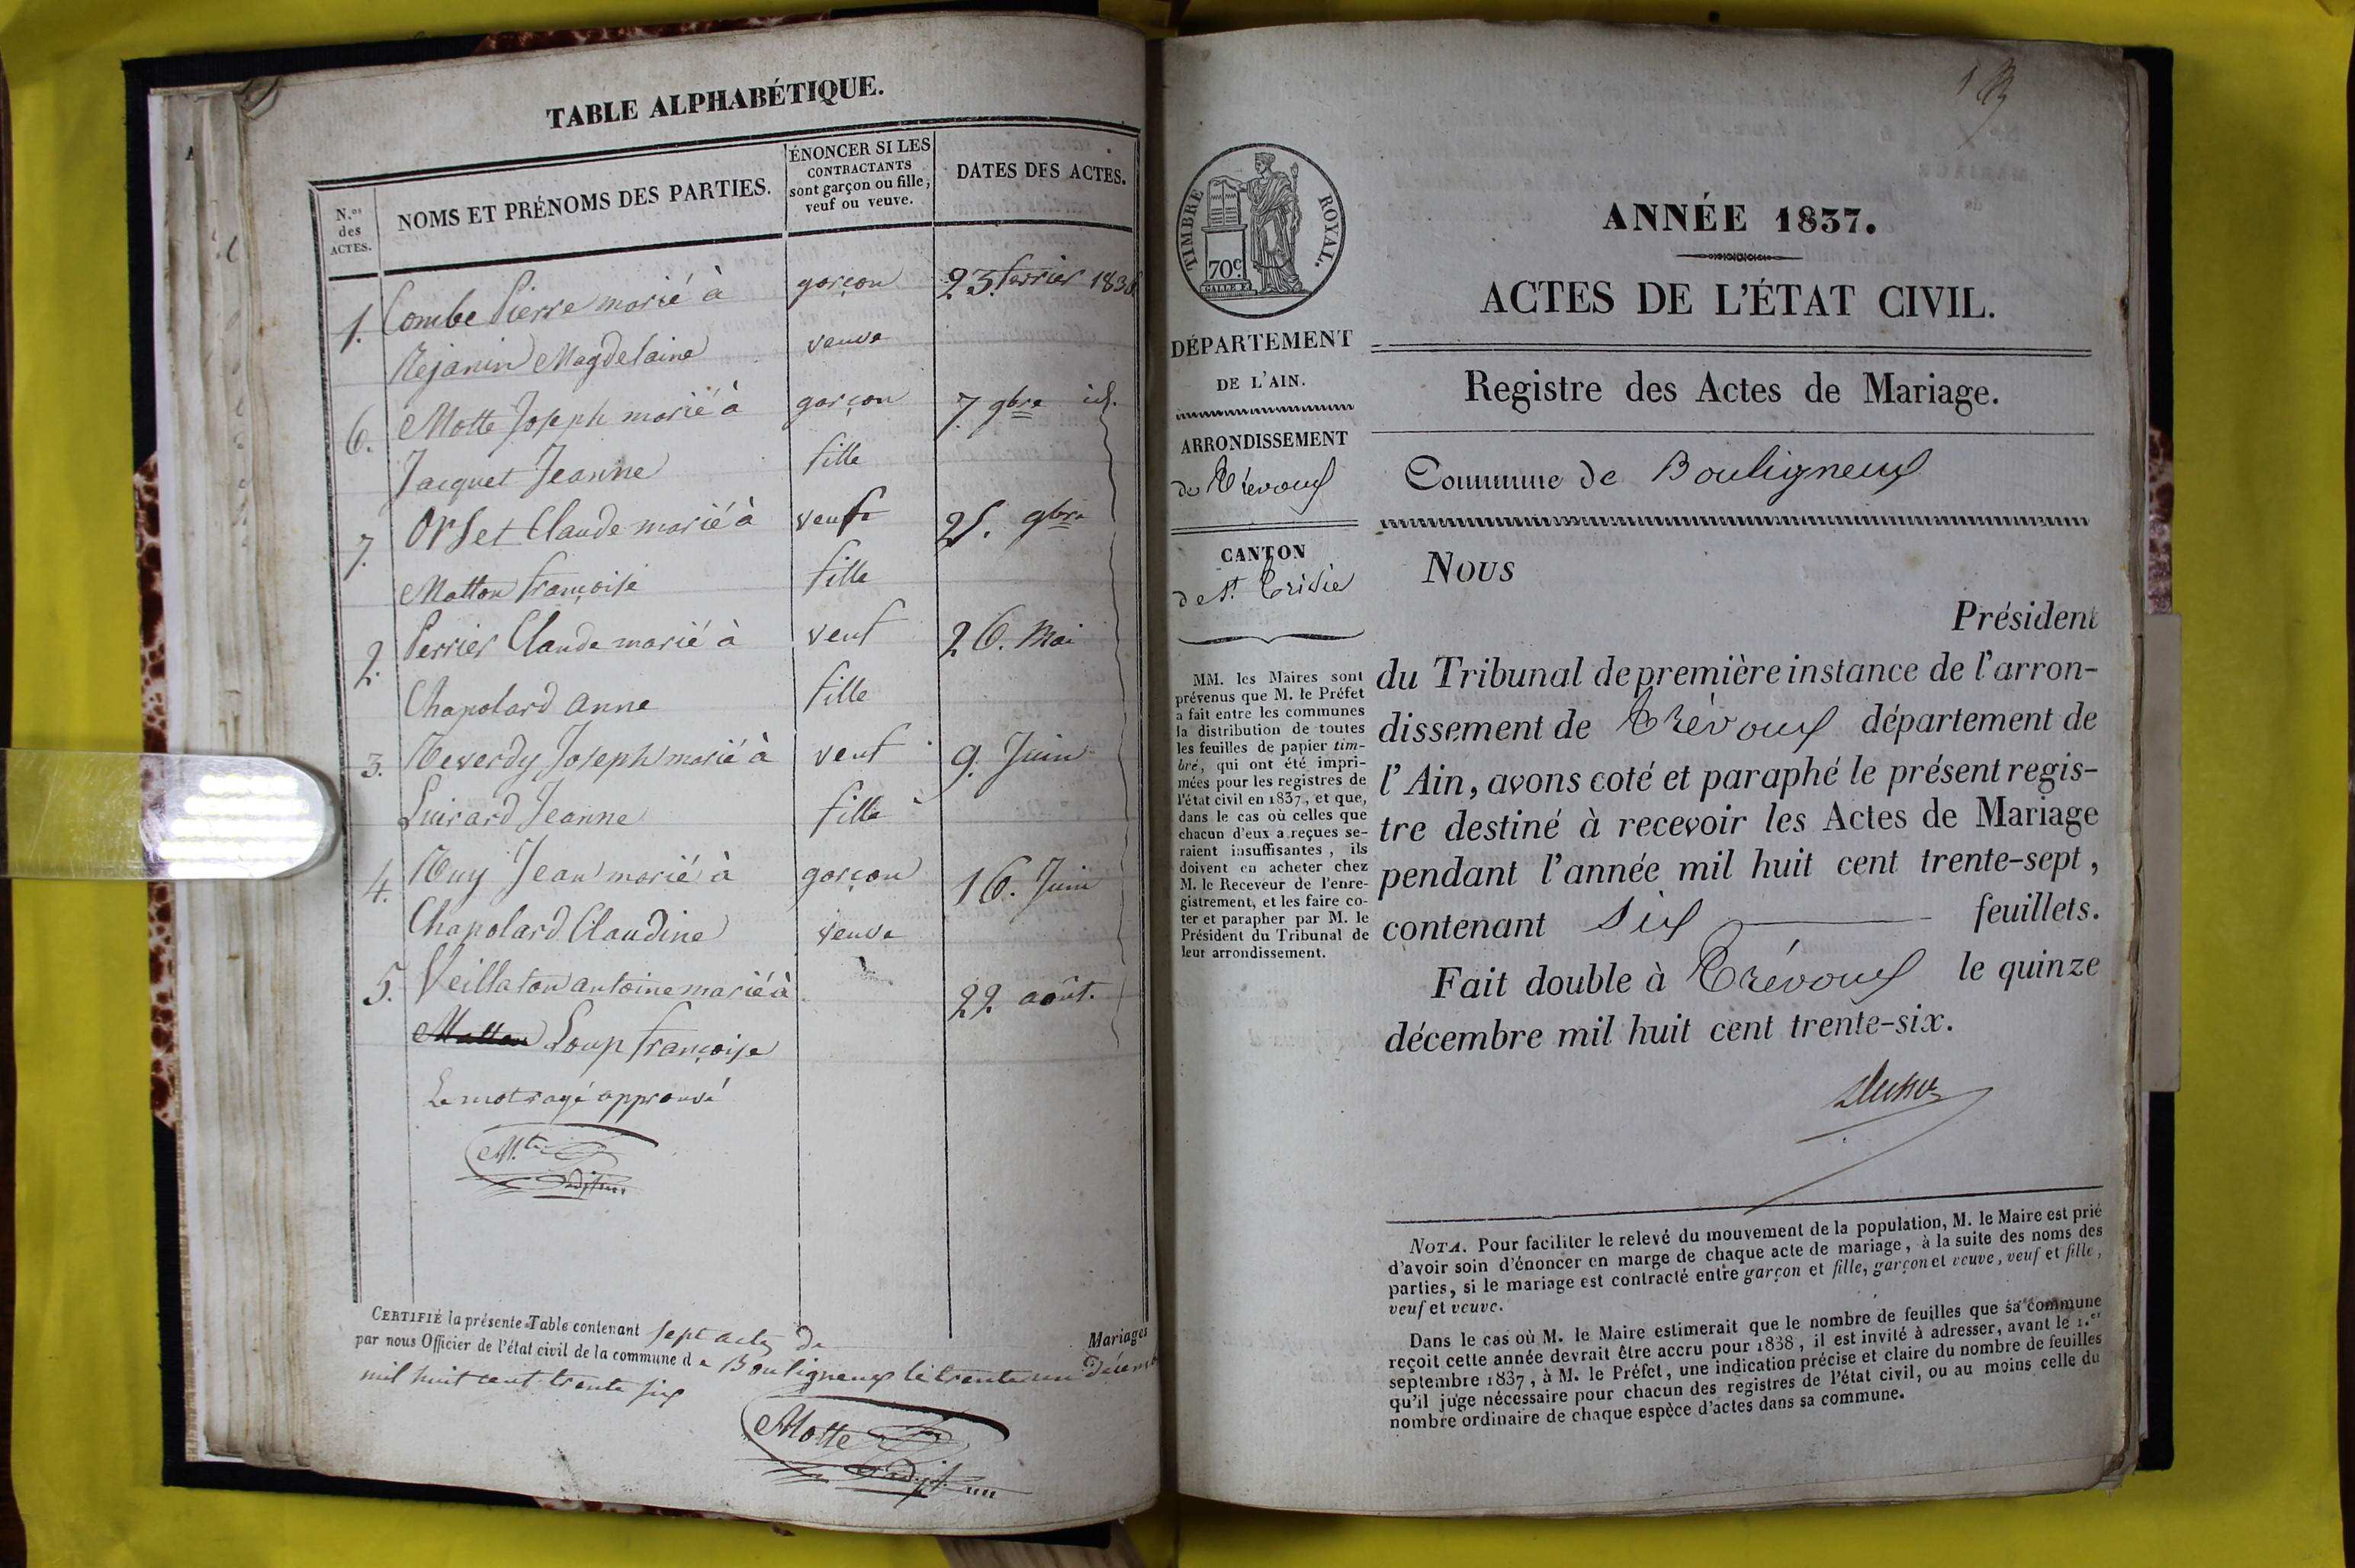 TABLE ALPHABÉTIQUE.
N.os des ACTES.
NOMS ET PRÉNOMS DES PARTIES.
ÉNONCER SI LES
CONTRACTANTS
sont garçon ou fille,
veuf ou veuve.
DATES DES ACTES.
1. Combe Pierre marié à garçon 23 février
Rejanin Magdelaine veuve
6. Motte Joseph marié à garçon 7 9bre id.
Jacquet Jeanne fille
7. Orset Claude marié à 25. 9bre
Matton françoise fille
2. Perrier Claude marié à veuf 26. Mai
Chapolard anne fille
3. Reverdy Joseph marié à veuf 9. Juin
Luirard Jeanne fille
4. Ruy Jean marié à garçon 16. Juin
Chapolard Claudine veuve
5. Veillaton antoine marié à 22 août.
Loup françoise
Le mot rayé approuvé
CERTIFIÉ la présente Table contenant sept actes de Mariages
par nous Officier de l'état civil de la commune de Bouligneux le trente un
mil huit cent trente six
Motte
TIMBRE ROYAL.
70 c.
DÉPARTEMENT
DE L'AIN.
ARRONDISSEMENT
de Trévoux
CANTON
de St. Trivier
MM. les Maires sont
prévenus que M. le Préfet
a fait entre les communes
la distribution de toutes
les feuilles de papier tim-
bré, qui ont été impri-
mées pour les registres de
l'état civil en 1837, et que,
dans le cas où celles que
chacun d'eux a reçues se-
raient insuffisantes, ils
doivent en acheter chez
M. le Receveur de l'enre-
gistrement, et les faire co-
ter et parapher par M. le
Président du Tribunal de
leur arrondissement.
ANNÉE 1837.
ACTES DE L'ÉTAT CIVIL.
Registre des Actes de Mariage.
Commune de Bouligneux
Nous
Président
du Tribunal de première instance de l'arron-
dissement de Trévoux département de
l'Ain, avons coté et paraphé le présent regis-
tre destiné à recevoir les Actes de Mariage
pendant l'année mil huit cent trente-sept,
contenant six feuillets.
Fait double à Trévoux le quinze
décembre mil huit cent trente-six.
NOTA. Pour faciliter le relevé du mouvement de la population, M. le Maire est prié
d'avoir soin d'énoncer en marge de chaque acte de mariage, à la suite des noms des
parties, si le mariage est contracté entre garçon et fille, garçon et veuve, veuf et fille,
veuf et veuve.
Dans le cas où M. le Maire estimerait que le nombre de feuilles que sa commune
reçoit cette année devrait être accru pour 1838, il est invité à adresser, avant le 1.er
septembre 1837, à M. le Préfet, une indication précise et claire du nombre de feuilles
qu'il juge nécessaire pour chacun des registres de l'état civil, ou au moins celle du
nombre ordinaire de chaque espèce d'actes dans sa commune.